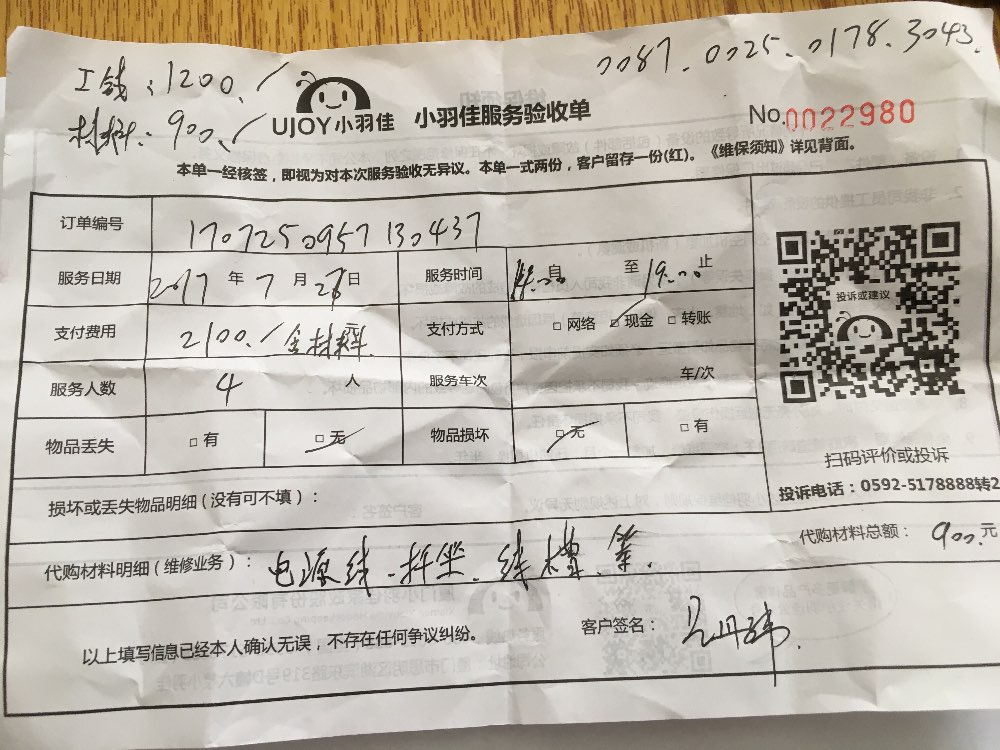 工钱：1200./
0087.0025.0178.3043.
材料：900./
UJOY小羽佳 小羽佳服务验收单
No.0022980
本单一经核签，即视为对本次服务验收无异议。本单一式两份，客户留存一份(红)。《维保须知》详见背面。
订单编号 170725095713 0437
服务日期 2017 年 7 月 26 日 服务时间 自 至 19:00 止
支付费用 2100./含材料 支付方式 □ 网络 □ 现金 □ 转账
服务人数 4 人 服务车次 车/次
物品丢失 □ 有 □ 无 物品损坏 □ 无 □ 有
投诉或建议
扫码评价或投诉
投诉电话：0592-5178888转2
损坏或丢失物品明细（没有可不填）：
代购材料明细（维修业务）： 电源线.插坐.线槽.等.
代购材料总额： 900.元
以上填写信息已经本人确认无误，不存在任何争议纠纷。
客户签名：